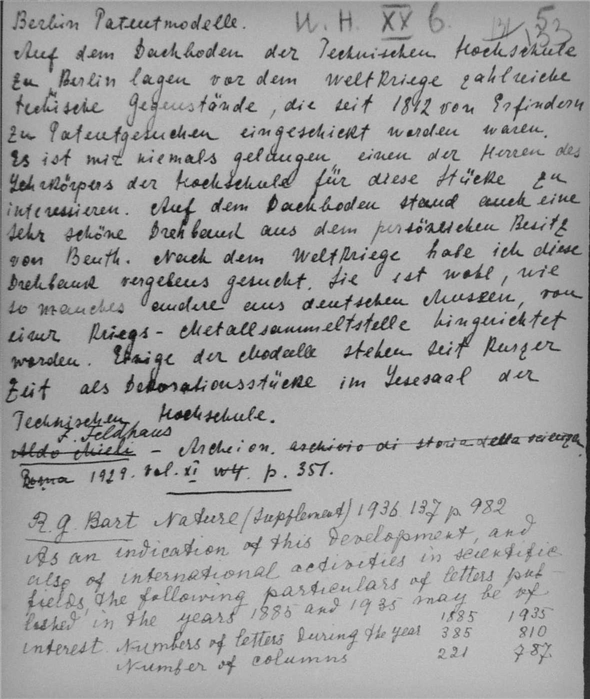 Berlin Patentmodelle. U. H. XX 6. 133
Auf dem Dachboden der Technischen Hochschule
zu Berlin lagen vor dem Weltkriege zahlreiche
techische Gegenstände, die seit 1812 von Erfindern
zu Patentgesuchen eingeschickt worden waren.
Es ist mir niemals gelungen einen der Herren des
Lehrkörpers der Hochschule für diese Stücke zu
interessieren. Auf dem Dachboden stand auch eine
sehr schöne Drehbank aus dem persönlichen Besitz
von Beuth. Nach dem Weltkriege habe ich diese
Drehbank vergebens gesucht. Sie ist wohl, wie
so manches andere aus deutschen Museen, von
einer Kriegs-Metallsammeltstelle hingerichtet
worden. Einige der Modelle stehen seit kurzer
Zeit als Dekorationsstücke im Lesesaal der
Technischen Hochschule.
F. Feldhaus
Aldo Mieli - Archeion. archivio di storia della scienza
Roma 1929. vol. XI p. 351.
R. G. Bart Nature (Supplement) 1936 137 p 982
As an indication of this development, and
also of international activities in scientific
fields, the following particulars of letters pub-
lished in the years 1885 and 1935 may be of
interest. 1885 1935
Numbers of letters during the year 385 810
Number of columns 221 787